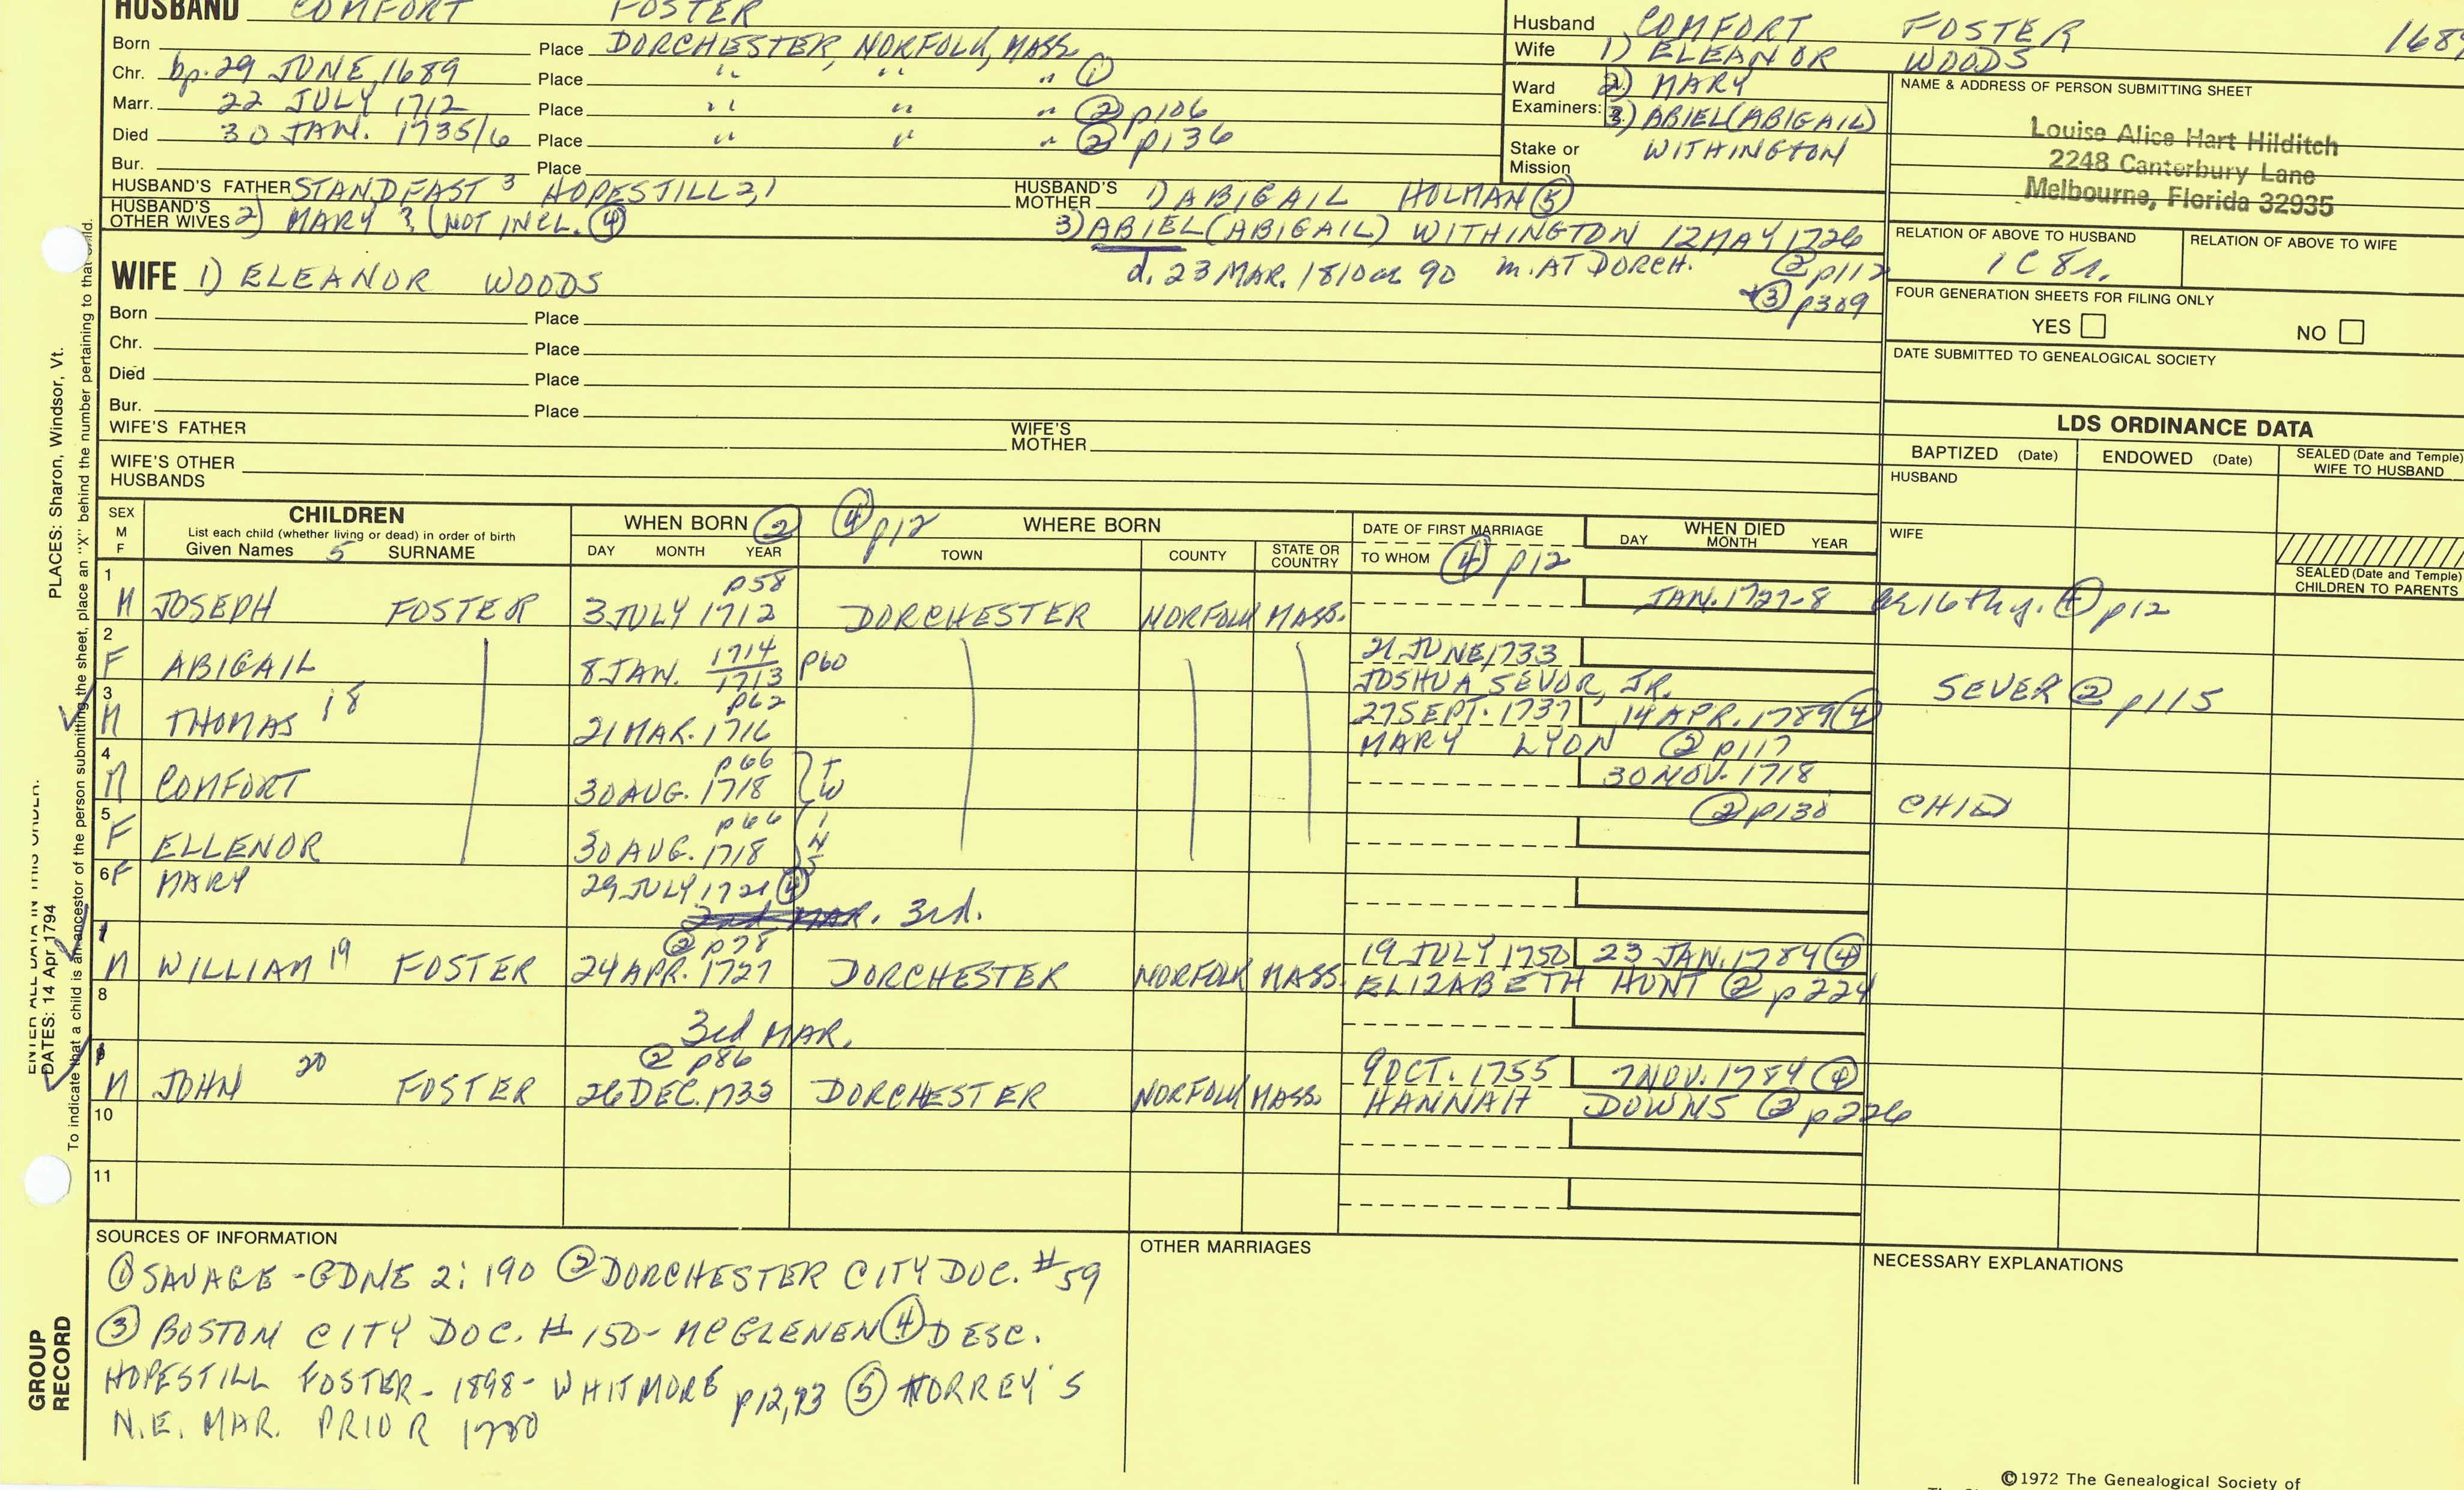 HUSBAND COMFORT FOSTER
Born Place DORCHESTER, NORFOLK, MASS
Chr. bp. 29 JUNE, 1689 Place " " " ①
Marr. 22 JULY 1712 Place " " " ② p106
Died 30 JAN. 1735/6 Place " " " ② p136
Bur. Place
HUSBAND'S FATHER STANDFAST 3 HOPESTILL 2,1 HUSBAND'S MOTHER 1) ABIGAIL HOLMAN ⑤
HUSBAND'S OTHER WIVES 2) MARY ? (NOT INCL. ④ 3) ABIEL (ABIGAIL) WITHINGTON 12 MAY 1726
d. 23 MAR. 1810 ae 90 m. AT DORCH. ② p112
+ ③ p309
WIFE 1) ELEANOR WOODS
Born Place
Chr. Place
Died Place
Bur. Place
WIFE'S FATHER WIFE'S MOTHER
WIFE'S OTHER HUSBANDS
Husband COMFORT FOSTER 168
Wife 1) ELEANOR WOODS
Ward 2) MARY
Examiners: 3) ABIEL (ABIGAIL)
Stake or Mission WITHINGTON
NAME & ADDRESS OF PERSON SUBMITTING SHEET
Louise Alice Hart Hilditch
2248 Canterbury Lane
Melbourne, Florida 32935
RELATION OF ABOVE TO HUSBAND RELATION OF ABOVE TO WIFE
1C 8r.
FOUR GENERATION SHEETS FOR FILING ONLY
YES NO
DATE SUBMITTED TO GENEALOGICAL SOCIETY
LDS ORDINANCE DATA
BAPTIZED (Date) ENDOWED (Date) SEALED (Date and Temple) WIFE TO HUSBAND
HUSBAND
WIFE
SEALED (Date and Temple) CHILDREN TO PARENTS
SEX M F CHILDREN
List each child (whether living or dead) in order of birth
Given Names 5 SURNAME
WHEN BORN ② ④ p12 WHERE BORN
DAY MONTH YEAR TOWN COUNTY STATE OR COUNTRY
DATE OF FIRST MARRIAGE WHEN DIED
TO WHOM ④ p12 DAY MONTH YEAR
1 p58
M JOSEPH FOSTER 3 JULY 1712 DORCHESTER NORFOLK MASS. JAN. 1727-8 ae 16thy. ④ p12
2 21 JUNE, 1733
F ABIGAIL 8 JAN. 1714/1713 p60 JOSHUA SEVOR, JR. SEVER ② p115
3 p62 27 SEPT. 1737 14 APR. 1789 ④
M THOMAS 18 21 MAR. 1716 MARY LYON ② p117
4 p66 30 NOV. 1718
M COMFORT 30 AUG. 1718 TWINS ② p130 CHILD
5 p66
F ELLENOR 30 AUG. 1718
6 F MARY 29 JULY 1721 ④
2nd MAR. 3rd.
7 ② p78 19 JULY 1750 23 JAN. 1784 ④
M WILLIAM 19 FOSTER 24 APR. 1727 DORCHESTER NORFOLK MASS. ELIZABETH HUNT ② p224
8
3rd MAR.
9 ② p86 9 OCT. 1755 7 NOV. 1784 ④
M JOHN 20 FOSTER 26 DEC. 1733 DORCHESTER NORFOLK MASS. HANNAH DOWNS ② p226
10
11
SOURCES OF INFORMATION
① SAVAGE - GDNE 2: 190 ② DORCHESTER CITY DOC. #59
③ BOSTON CITY DOC. # 150- MCGLENEN ④ DESC.
HOPESTILL FOSTER - 1898 - WHITMORE p12,93 ⑤ TORREY'S
N.E. MAR. PRIOR 1700
OTHER MARRIAGES
NECESSARY EXPLANATIONS
©1972 The Genealogical Society of
PLACES: Sharon, Windsor, Vt.
ENTER ALL DATA IN THIS ORDER:
DATES: 14 Apr 1794
To indicate that a child is an ancestor of the person submitting the sheet, place an "X" behind the number pertaining to that child.
GROUP
RECORD